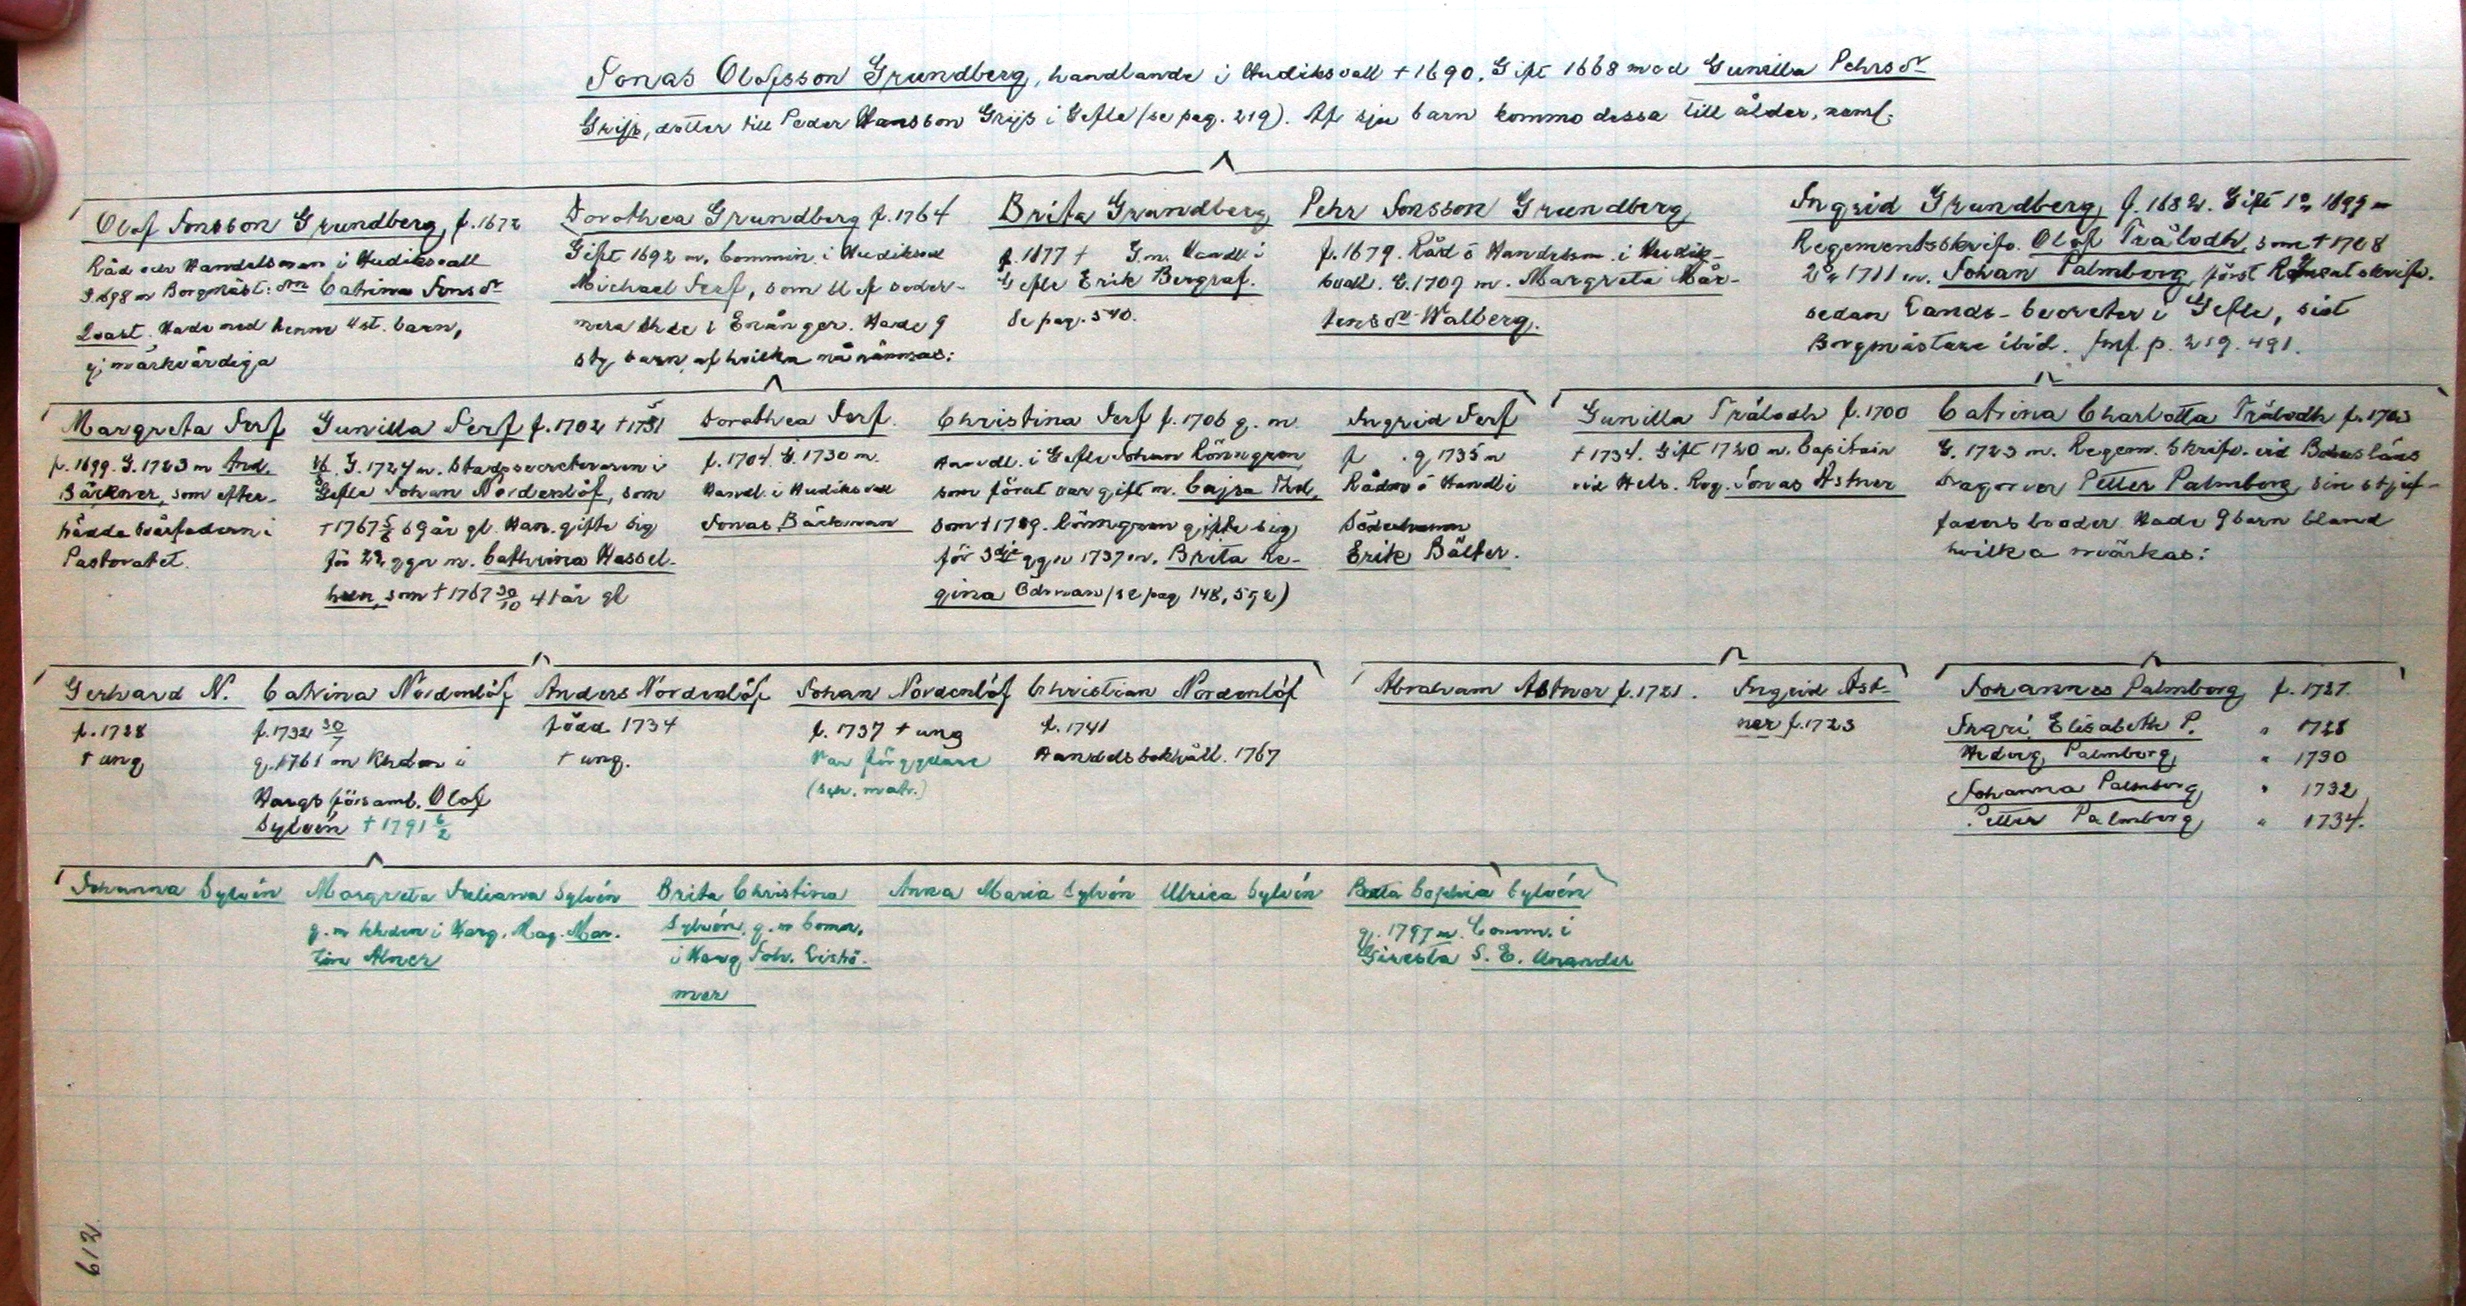 Jonas Olofsson Grundberg, handlande i Hudiksvall † 1690. Gift 1668 med Gunilla Pehrsdr
Grijs, dotter till Peder Hansson Grijs i Gefle (se pag. 219). Af sju barn kommo dessa till ålder, neml.
Olof Jonsson Grundberg, f. 1672
Råd och Handelsman i Hudiksvall
G. 1698 m Borgmäst: dn Catrina Jonsdr
Qvast. Hade med henne 4 st. barn,
ej märkvärdiga
Dorothea Grundberg f. 1764
Gift 1692 m. Commin. i Hudiksvall
Michael Ferf, som blef seder-
mera khde i Enånger. Hade 9
stz barn, af hvilka må nämnas:
Brita Grundberg
f. 1677 † G. m. Handl. i
Gefle Erik Bergraf.
Se pag. 540.
Pehr Jonsson Grundberg
f. 1679. Råd o Handelsm. i Hudik-
svall. G. 1709 m. Margreta Mår-
tensdr Walberg.
Ingrid Grundberg f. 1682. Gift 1o 1699 m
Regementsskrifv. Olof Trälodh, som † 1708
2o 1711 m. Johan Palmberg, först Regmentskrifv.
sedan Lands-Secreter i Gefle, sist
Borgmästare ibid. Jmf. p. 219. 491.
Margreta Ferf
f. 1699. G. 1723 m And.
Bäckner, som efter-
trädde svärfadern i
Pastoratet.
Gunilla Ferf f. 1702 † 1731
G. 1724 m. Stadssecreteraren i
Gefle Johan Nordenlöf, som
† 1767 5/6 69 år gl. Han gifte sig
för 2a ggn m. Cathrina Hassel-
hun, som † 1767 30/10 41 år gl
Dorothea Ferf.
f. 1704. G. 1730 m.
Handl. i Hudiksvall
Jonas Bäckman
Christina Ferf f. 1706 g. m
Handl. i Gefle Johan Rönngren
som förut var gift m. Cajsa Thd,
som † 1729. Rönngren gifte sig
för 3dje ggn 1737 m. Brita Re-
gina Ödman (se pag 148, 592)
Ingrid Ferf
f . g 1735 m
Rådm o Handl i
Söderhamn
Erik Bälter.
Gunilla Trälodh f. 1700
† 1734. Gift 1720 m. Capitain
vid Hels. Reg. Jonas Astner
Catrina Charlotta Trälodh f. 1703
G. 1723 m. Regem. Skrifv. vid Bohusläns
Dragoner Petter Palmberg, sin stjuf-
faders broder. Hade 9 barn bland
hvilka märkas:
Gerhard N.
f. 1728
† ung
Catrina Nordenlöf
f. 1732 30/7
g. 1761 m Khden i
Hargs församl. Olof
Sylvén † 1791 6/2
Anders Nordenlöf
född 1734
† ung.
Johan Nordenlöf
f. 1737 † ung
Var förgyllare
(Sch. matr.)
Christian Nordenlöf
f. 1741
Handelsbokhåll. 1767
Abraham Astner f. 1721.
Ingrid Ast-
ner f. 1723
Johannes Palmberg f. 1727
Ingri Elisabeth P. " 1728
Hedvig Palmberg " 1730
Johanna Palmberg " 1732
Petter Palmberg " 1734.
Johanna Sylvén
Margreta Juliana Sylvén
g. m khden i Harg, Mag. Mar-
tin Alner
Brita Christina
Sylvén, g. m Comm.
i Harg Joh. Liströ-
mer
Anna Maria Sylvén
Ulrica Sylvén
Beata Sophia Sylvén
g. 1797 m. Comm. i
Giresta S. E. Unander
612